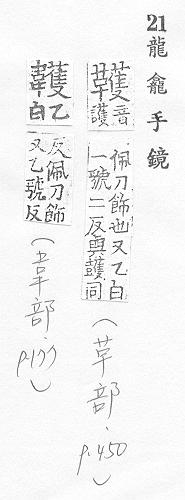 21龍龕手鏡
韄音護佩刀飾也又乙白
一號二反與護同
(革部, p.450)
乙白反佩刀飾
又乙號反
(韋部, p.177)